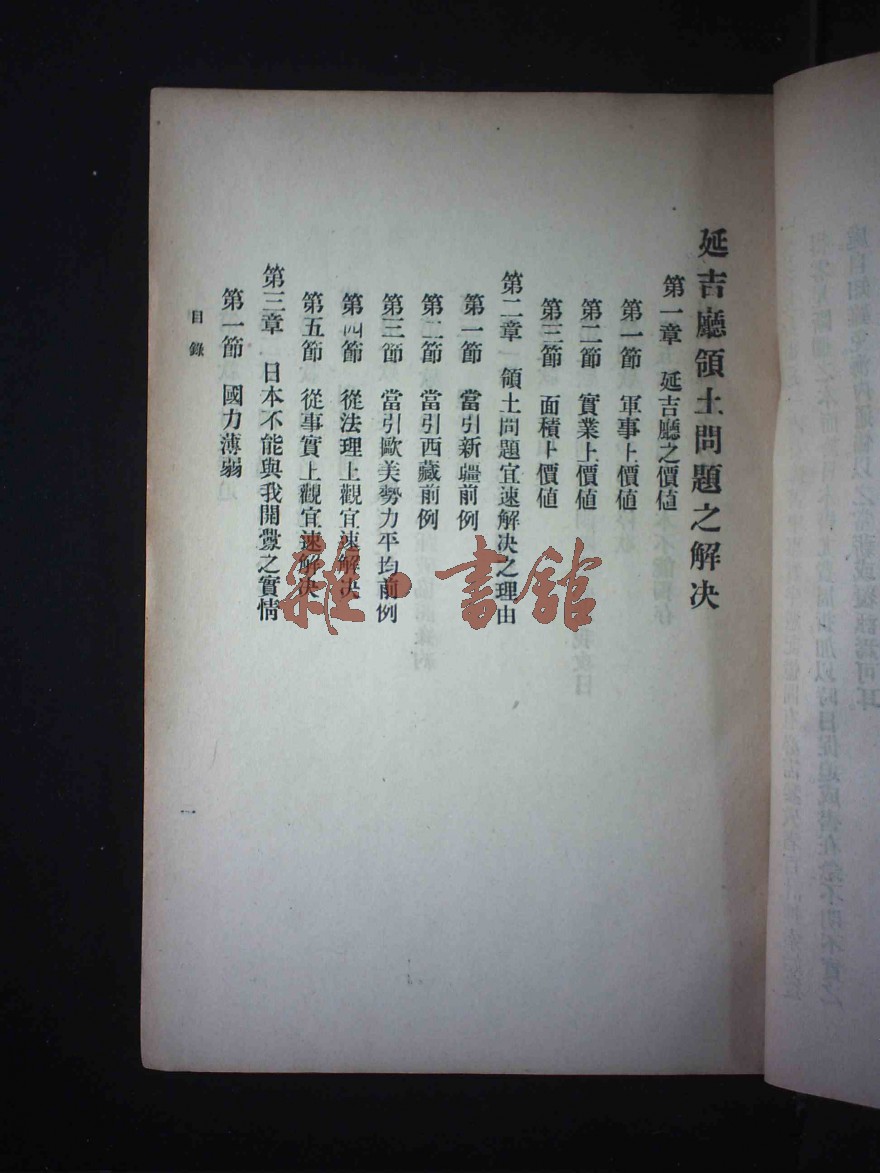 延吉廳領土問題之解決
第一章 延吉廳之價値
第一節 軍事上價値
第二節 實業上價値
第三節 面積上價値
第二章 領土問題宜速解決之理由
第一節 當引新疆前例
第二節 當引西藏前例
第三節 當引歐美勢力平均前例
第四節 從法理上觀宜速解決
第五節 從事實上觀宜速解決
第三章 日本不能與我開釁之實情
第一節 國力薄弱
目錄
一
雜·書館